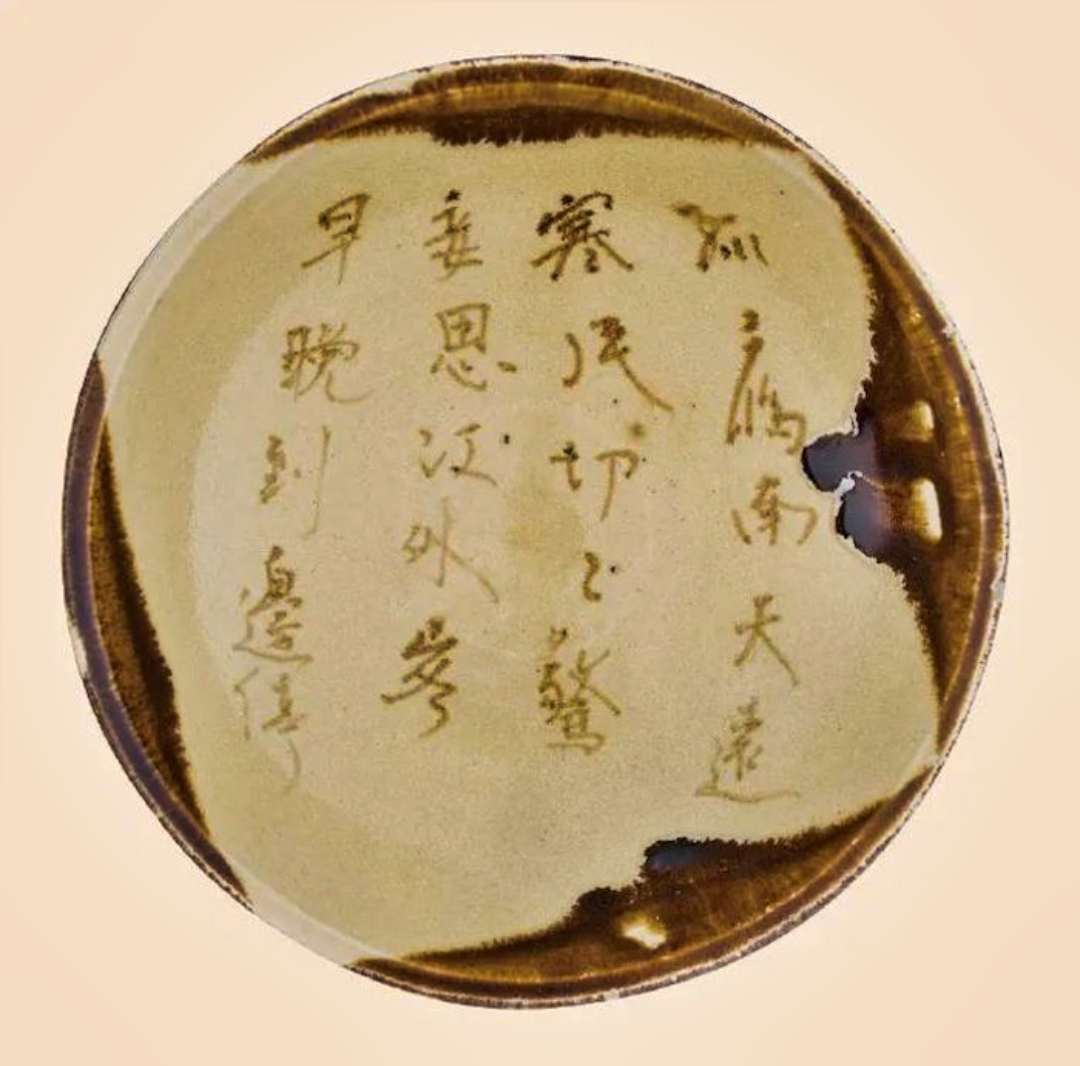 孤鴈南天遠
寒風切〻驚
妾思江外客
早晚到邊停